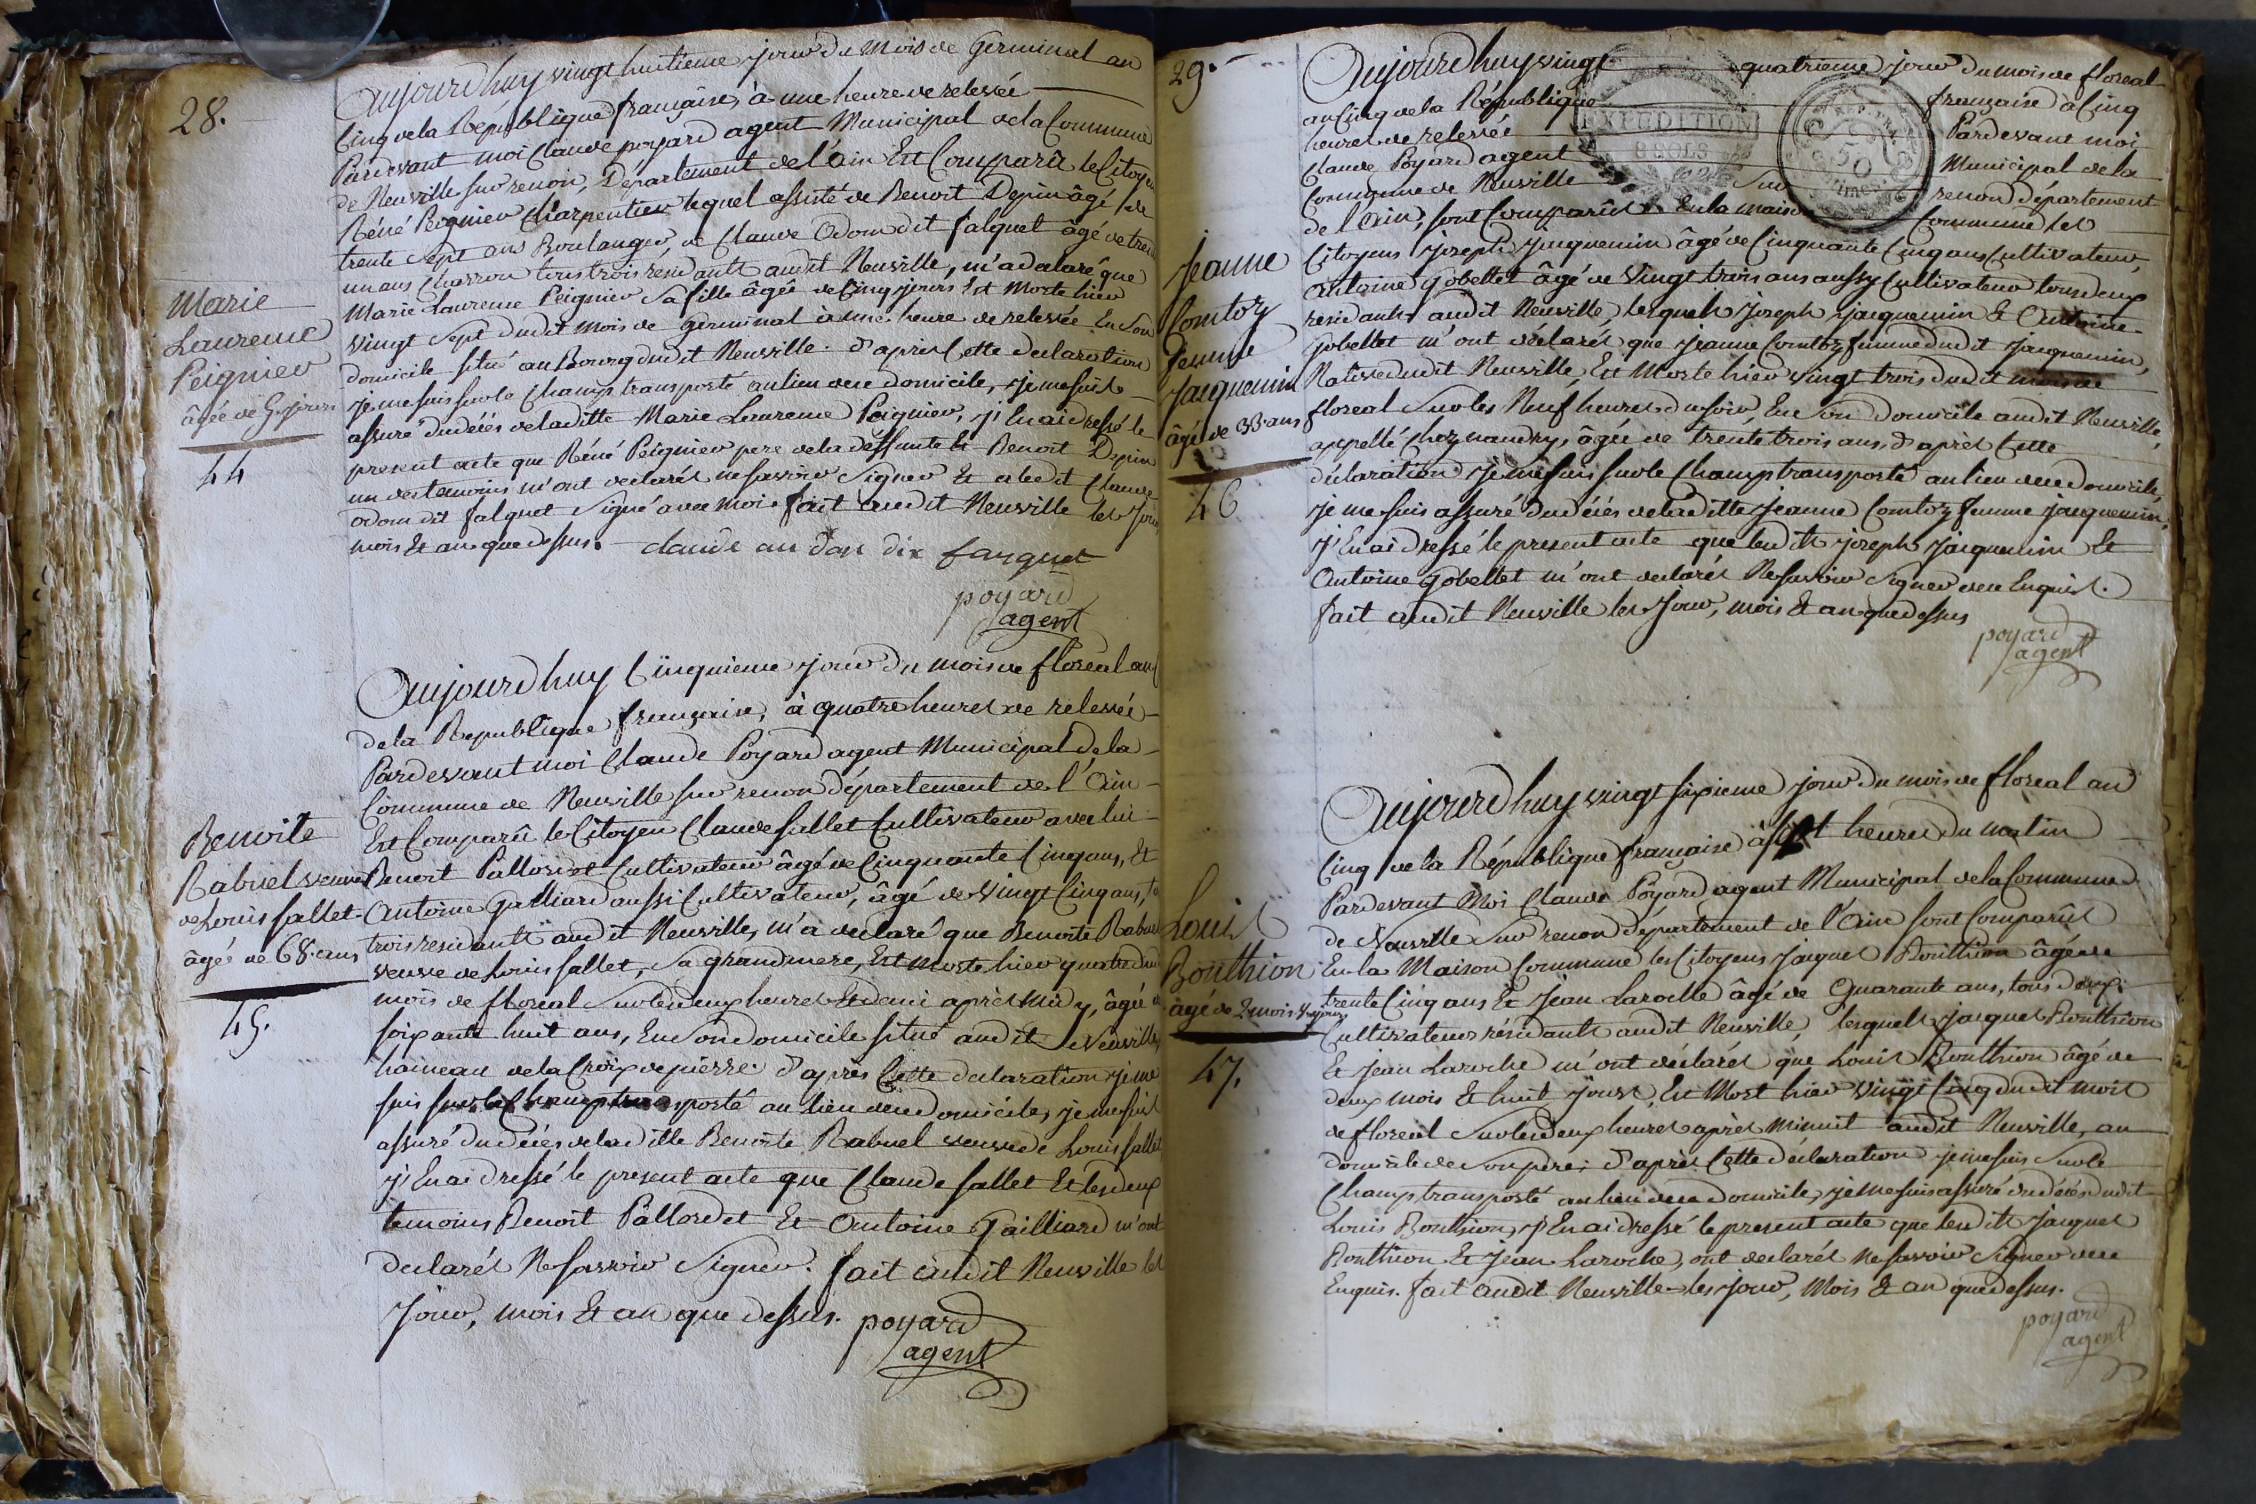 28.
Aujourd'huy vingt huitieme jour du mois de Germinal an
Cinq de la République française, à une heure de relevée
Pardevant moi Claude poyard agent Municipal de la Commune
de Neuville sur renon, Département de l'ain Est Comparû le Citoyen
Réné Peignier Charpentier lequel assisté de Benoit Depin âgé de
trente sept ans Boulanger, et Claude Odom dit falquet âgé de trente
un ans Charron tous trois residants audit Neuville, m'a déclaré que
Marie Laurence Peignier Sa fille âgée de Cinq jours Est Morte hier
vingt sept dudit mois de germinal à une heure de relevée En Son
domicile situé au Bourg dudit Neuville. d'après Cette declaration
je me suis sur le Champ transporté au lieu de ce domicile, je me suis
assuré du décés de laditte Marie Laurence Peignier, j'En ai dressé le
present acte que Réné Peignier pere de la deffunte et Benoit Depin
un des temoins m'ont declarés ne savoir Signer Et a ledit Claude
odom dit falquet Signé avec moi. fait audit Neuville les Jour
mois Et an que dessus. claude au don dix farquet
poyard
agent
Marie
Laurence
Peignier
âgée de 5 jours
44
Aujourd'huy Cinquieme jour du mois de floreal an
de la Republique française, à quatre heures de relevée
Pardevant moi Claude Poyard agent Municipal de la
Commune de Neuville sur renon département de l'Ain
Est Comparû le Citoyen Claude fallet Cultivateur avec lui
Benoit Pallordet Cultivateur âgé de Cinquante Cinq ans, Et
Antoine Gailliard aussi Cultivateur, âgé de Vingt Cinq ans,
trois residants audit Neuville, m'a declaré que Benoite Rabuel
veuve de Louis fallet, Sa grand mere, Est Morte hier quatre du
mois de floreal Sur les deux heures Et demi après Midy, âgée de
soixante huit ans, En Son domicile situé audit Neuville
hameau de la Croix de pierre. d'après Cette declaration je me
suis sur le Champ transporté au lieu de ce domicile, je me suis
assuré du décés de laditte Benoite Rabuel veuve de Louis fallet
j'En ai dressé le present acte que Claude fallet Et les deux
temoins Benoit Pallordet Et Antoine Gailliard m'ont
declarés Ne savoir Signer. fait audit Neuville les
Jour, mois Et an que dessus. poyard
agent
Benoite
Rabuel veuve
de Louis fallet
âgée de 68 ans
45.
29.
Aujourd'huy vingt quatrieme jour du mois de floreal
an Cinq de la République française à Cinq
heures de relevée Pardevant moi
Claude Poyard agent Municipal de la
Commune de Neuville Sur renon département
de l'Ain, sont Comparûs En la maison Commune les
EXPEDITION
8 SOLS
REP. FRA.
50
Citoyens Joseph Jacquemin âgé de Cinquante Cinq ans Cultivateur,
Antoine Gobellet âgé de Vingt trois ans aussy Cultivateur tous deux
residants audit Neuville, lesquels Joseph Jacquemin Et Antoine
gobellet m'ont déclarés que Jeanne Comtoz femme dudit Jacquemin,
Native dudit Neuville, Est Morte hier vingt trois dudit mois de
floreal Sur les Neuf heures du soir, En Son domicile audit Neuville,
appellé Chez naudry, âgée de trente trois ans, d'après Cette
déclaration je me suis sur le Champ transporté au lieu de ce domicile,
je me suis assuré du décés de laditte Jeanne Comtoz femme jacquemin,
j'En ai dressé le present acte que lesdits joseph Jacquemin Et
Antoine Gobellet m'ont declarés Ne savoir Signer de ce Enquis.
fait audit Neuville les Jour, mois Et an que dessus
poyard
agent
Jeanne
Comtoz
femme
Jacquemin
âgé de 33 ans
46
Aujourd'huy vingt sixieme jour du mois de floreal an
Cinq de la République française à sept heures du matin
Pardevant Moi Claude Poyard agent Municipal de la Commune
de Neuville Sur renon département de l'Ain sont Comparûs
En la Maison Commune les Citoyens Jacques Bouthion âgé de
trente Cinq ans Et Jean Laroche âgé de Quarante ans, tous deux
Cultivateurs résidants audit Neuville, lesquels jacques Bouthion
Et jean Laroche m'ont déclarés que Louis Bouthion âgé de
deux mois Et huit jours, Est Mort hier Vingt Cinq dudit mois
de floreal Sur les deux heures après Minuit audit Neuville, au
domicile de Son père; d'après Cette déclaration je me suis Sur le
Champ transporté au lieu de ce domicile, je me suis assuré du décés dudit
Louis Bouthion, j'En ai dressé le present acte que lesdits Jacques
Bouthion Et Jean Laroche, ont declarés ne savoir Signer de ce
Enquis. fait audit Neuville les Jour, Mois Et an que dessus.
poyard
agent
Louis
Bouthion
âgé de 2 mois 8 jours
47.